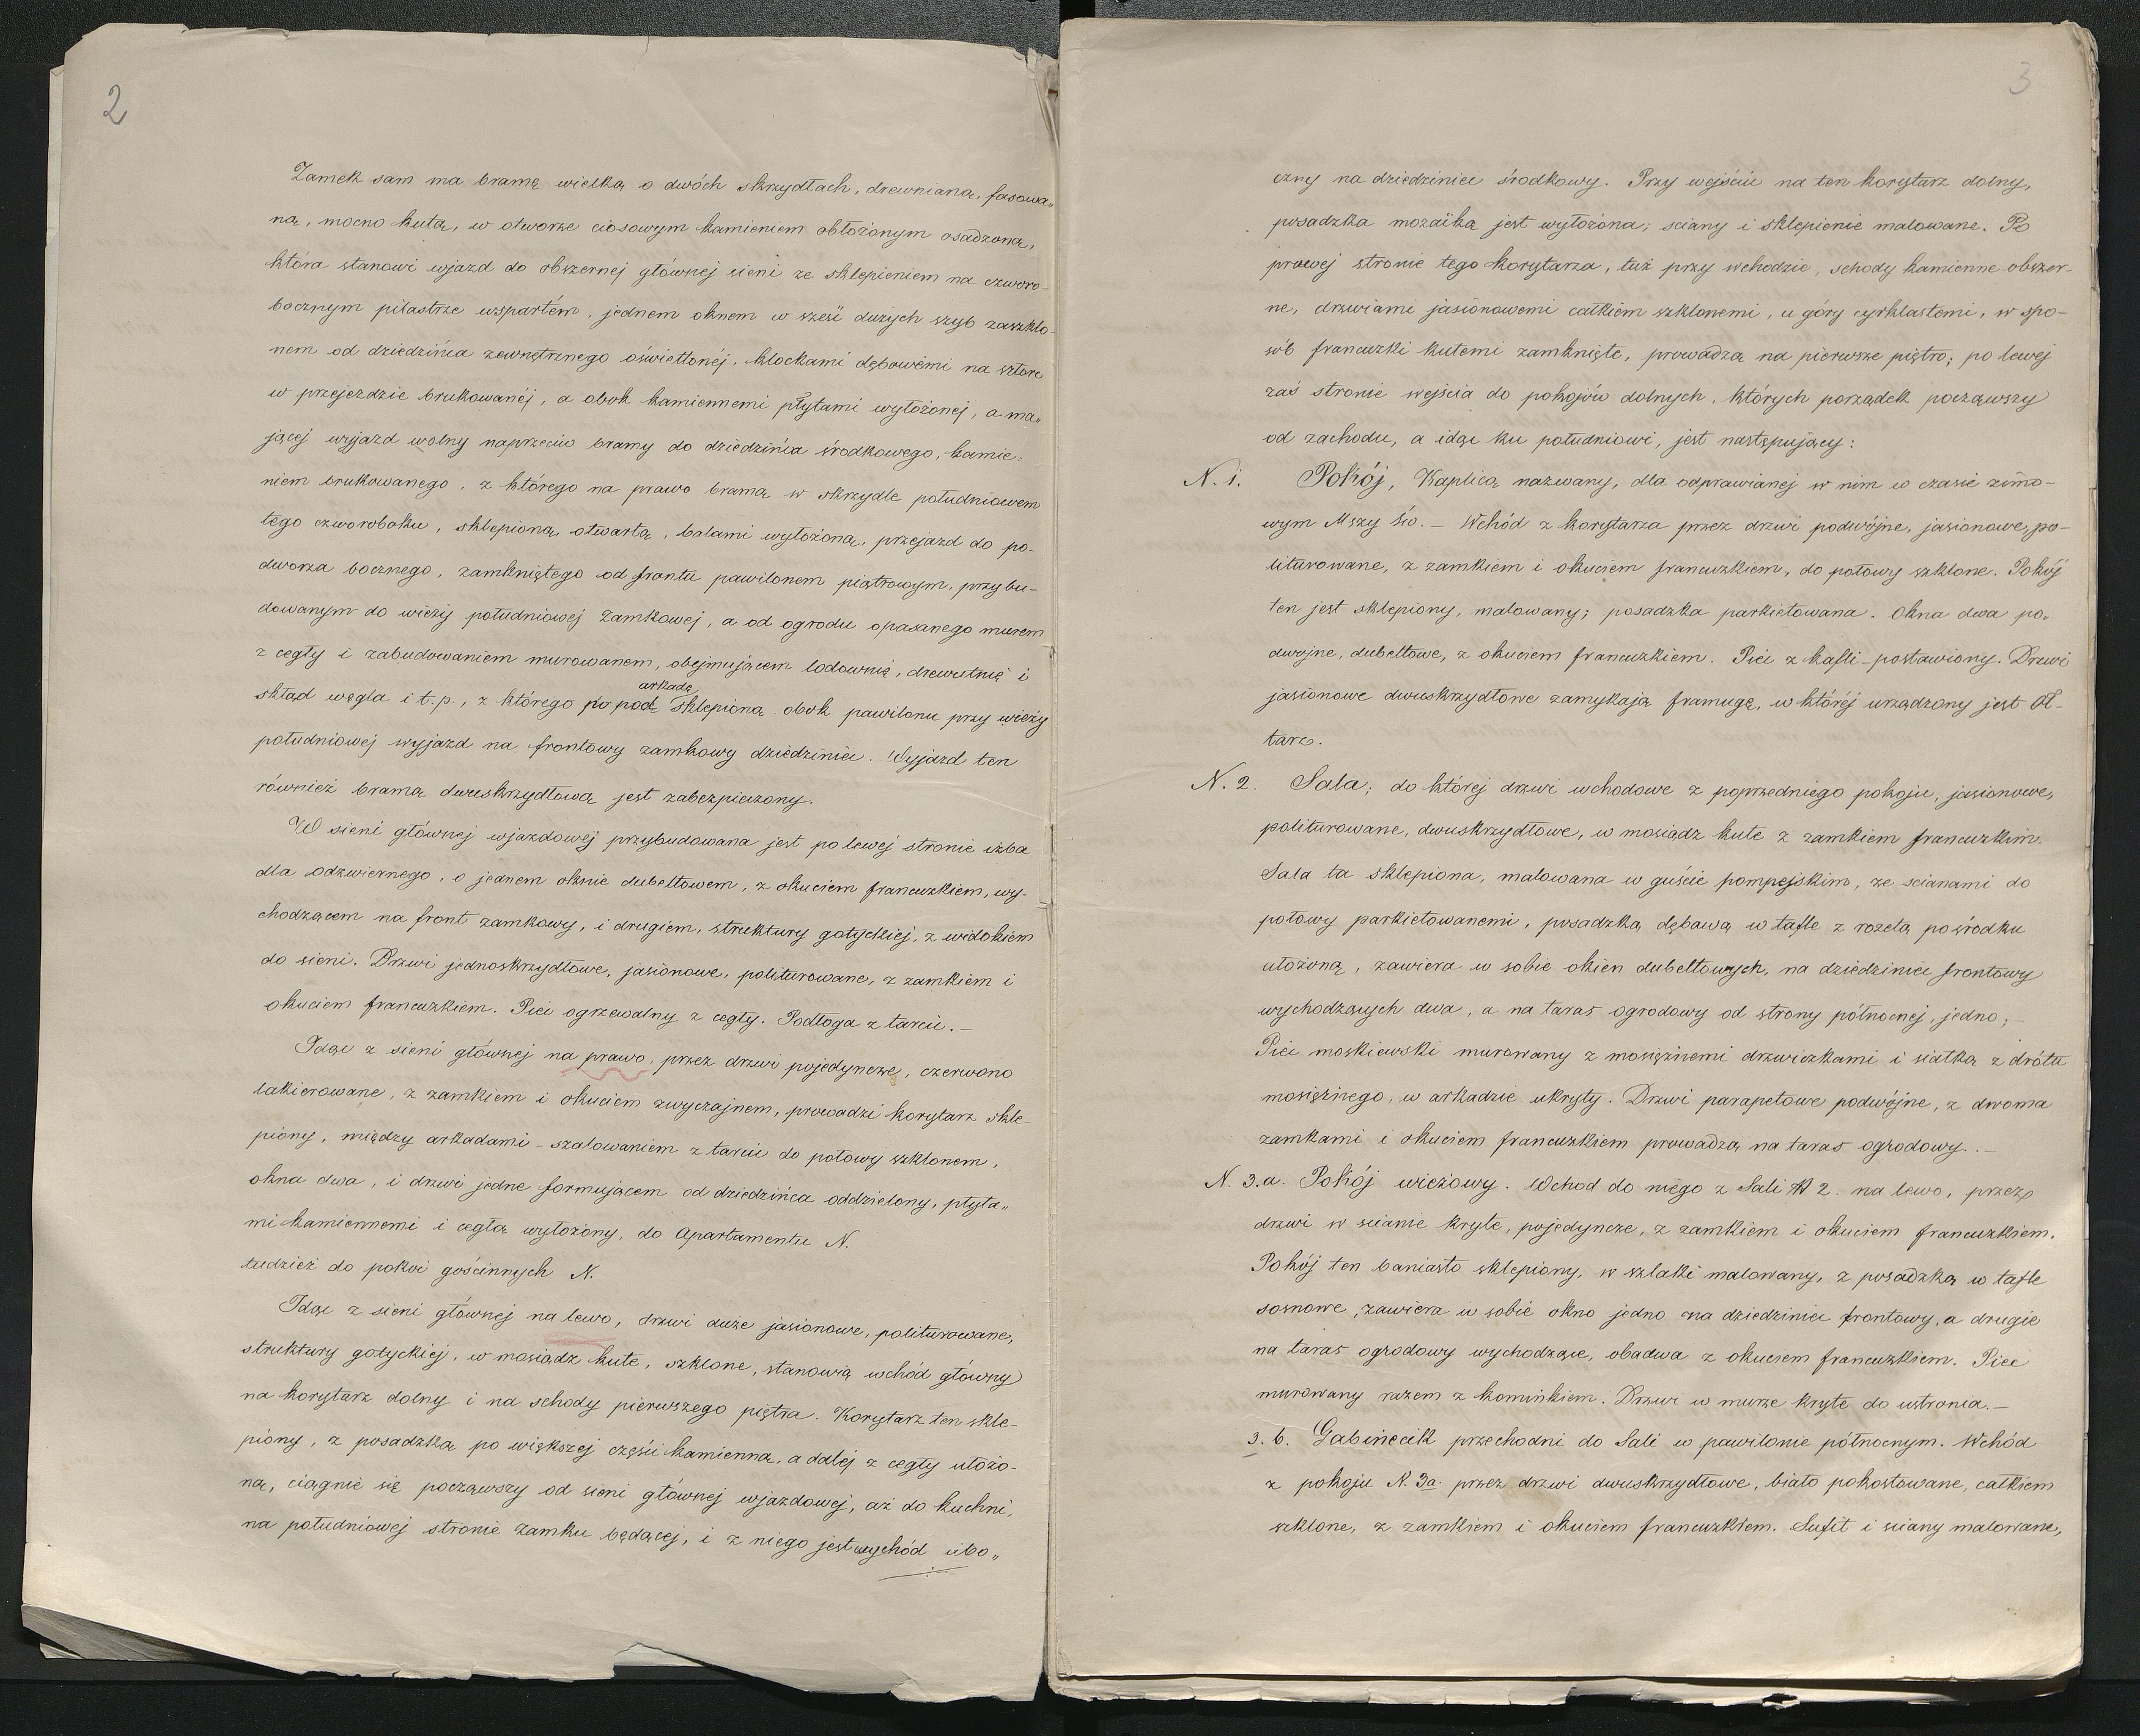 2
Zamek sam ma bramę wielką o dwóch skrzydłach, drewnianą, fasowa„
ną, mocno kutą, w otworze ciosowym kamieniem obłożonym osadzoną,
która stanowi wjazd do obszernej głównej sieni ze sklepieniem na czworo-
bocznym pilastrze wspartém, jednem oknem w sześć dużych szyb zaszklo-
nem od dziedzińca zewnętrznego oświetlonéj, klockami dębowémi na sztorc
w przejeździe brukowanéj, a obok kamiennemi płytami wyłożonej, a ma„
jącej wyjazd wolny naprzeciw bramy do dziedzińca środkowego, kamie-
niem brukowanego, z którego na prawo bramą w skrzydle południowem
tego czworoboku, sklepioną, otwartą, balami wyłożoną, przejazd do po-
dworza bocznego, zamkniętego od frontu pawilonem piętrowym, przybu-
dowanym do wieży południowej Zamkowej, a od ogrodu opasanego murem
z cegły i zabudowaniem murowanem, obejmującem lodownię, drewutnię i
skład węgla i t. p., z którego po pod arkadę sklepioną obok pawilonu przy wieży
południowej wyjazd na frontowy zamkowy dziedziniec. Wyjazd ten
również bramą dwuskrzydłową jest zabezpieczony.
W sieni głównej wjazdowej przybudowana jest po lewej stronie izba
dla odzwiernego, o jednem oknie dubeltowem, z okuciem francuzkiem, wy-
chodzącem na front zamkowy, i drugiem, struktury gotyckiej, z widokiem
do sieni. Drzwi jednoskrzydłowe, jasionowe, politurowane, z zamkiem i
okuciem francuzkiem. Piec ogrzewalny z cegły. Podłoga z tarcic.–
Idąc z sieni głównej na prawo, przez drzwi pojedyncze, czerwono
lakierowane, z zamkiem i okuciem zwyczajnem, prowadzi korytarz skle-
piony, między arkadami – szalowaniem z tarcic do połowy szklonem,
okna dwa, i drzwi jedne formującem od dziedzińca oddzielony, płyta„
mi kamiennemi i cegłą wyłożony, do Apartamentu N.
tudzież do pokoi gościnnych N.
Idąc z sieni głównej na lewo, drzwi duże jasionowe, politurowane,
struktury gotyckiej, w mosiądz kute, szklone, stanowią wchód główny
na korytarz dolny i na schody pierwszego piętra. Korytarz ten skle-
piony, z posadzką po większej części kamienną, a dalej z cegły ułożo-
ną, ciągnie się począwszy od sieni głównej wjazdowej, aż do kuchni,
na południowej stronie Zamku będącej, i z niego jest wychód ubo„
3
czny na dziedziniec środkowy. Przy wejściu na ten korytarz dolny,
posadzka mozaïką jest wyłożona; sciany i sklepienie malowane. Po
prawej stronie tego korytarza, tuż przy wchodzie, schody kamienne obszer-
ne, drzwiami jasionowemi całkiem szklonemi, u góry cyrklastemi, w spo-
sób francuzki kutemi zamknięte, prowadzą na pierwsze piętro; po lewej
zaś stronie wejścia do pokojów dolnych, których porządek począwszy
od zachodu, a idąc ku południowi, jest następujący:
N. 1. Pokój, Kaplicą nazwany, dla odprawianej w nim w czasie zimo-
wym Mszy św. – Wchód z korytarza przez drzwi podwójne, jasionowe, po-
liturowane, z zamkiem i okuciem francuzkiem, do połowy szklone. Pokój
ten jest sklepiony, malowany; posadzka parkietowana. Okna dwa po„
dwojne, dubeltowe, z okuciem francuzkiem. Piec z kafli – postawiony. Drzwi
jasionowe dwuskrzydłowe zamykają framugę, w której urządzony jest Oł-
tarz.
N. 2. Sala; do której drzwi wchodowe z poprzedniego pokoju, jasionowe,
politurowane, dwuskrzydłowe, w mosiądz kute z zamkiem francuzkim.
Sala ta sklepiona, malowana w guście pompejskim, ze scianami do
połowy parkietowanemi, posadzką dębową w tafle z rozetą pośrodku
ułożoną, zawiera w sobie okien dubeltowych, na dziedziniec frontowy
wychodzących dwa, a na taras ogrodowy od strony północnej, jedno; –
Piec moskiewski murowany z mosiężnemi drzwiczkami i siatką z drótu
mosiężnego, w arkadzie ukryty. Drzwi parapetowe podwójne, z dwoma
zamkami i okuciem francuzkiem prowadzą na taras ogrodowy. –
N. 3.a. Pokój wieżowy. Wchod do niego z Sali N 2. na lewo, przez
drzwi w scianie kryte, pojedyncze, z zamkiem i okuciem francuzkiem.
Pokój ten baniasto sklepiony, w szlaki malowany, z posadzką w tafle
sosnowe, zawiera w sobie okno jedno na dziedziniec frontowy, a drugie
na taras ogrodowy wychodzące, obadwa z okuciem francuzkiem. Piec
murowany razem z kominkiem. Drzwi w murze kryte do ustronia.–
3. b. Gabinecik przechodni do Sali w pawilonie północnym. Wchód
z pokoju N. 3a. przez drzwi dwuskrzydłowe, biało pokostowane, całkiem
szklone, z zamkiem i okuciem francuzkiem. Sufit i sciany malowane,